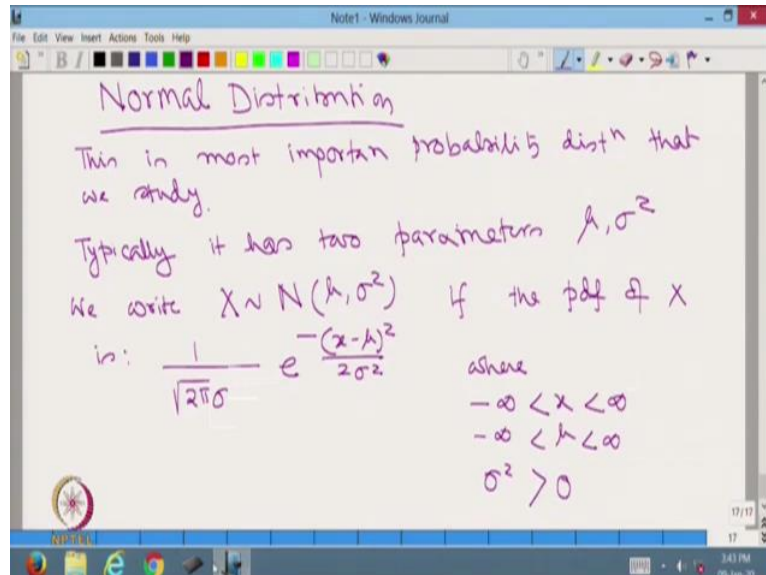 Note1 - Windows Journal
File Edit View Insert Actions Tools Help
B I
Normal Distribution
This is most importan probability distⁿ that
we study.
Typically it has two parameters μ, σ²
We write X ~ N(μ, σ²) if the pdf of X
is: 1/(√2π σ) e^(-(x-μ)²/2σ²)
where
-∞ < x < ∞
-∞ < μ < ∞
σ² > 0
NPTEL
17/17
17
3:43 PM